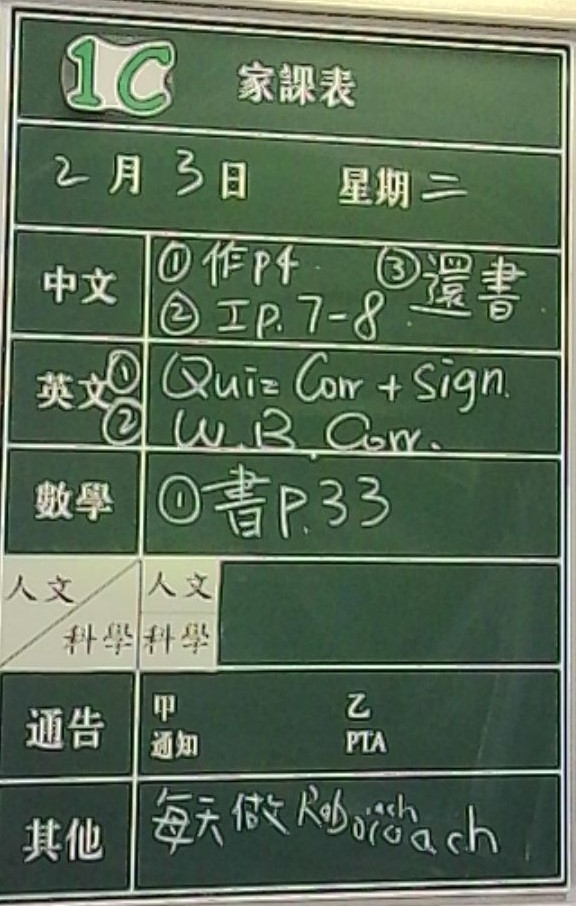 1C 家課表
2月3日 星期二
中文 ①作p4 ③還書
②工p.7-8
英文 ① Quiz Corr + Sign.
② W.B. Corr.
數學 ①書p.33
人文 人文
科學 科學
通告 甲 乙
通知 PTA
其他 每天做